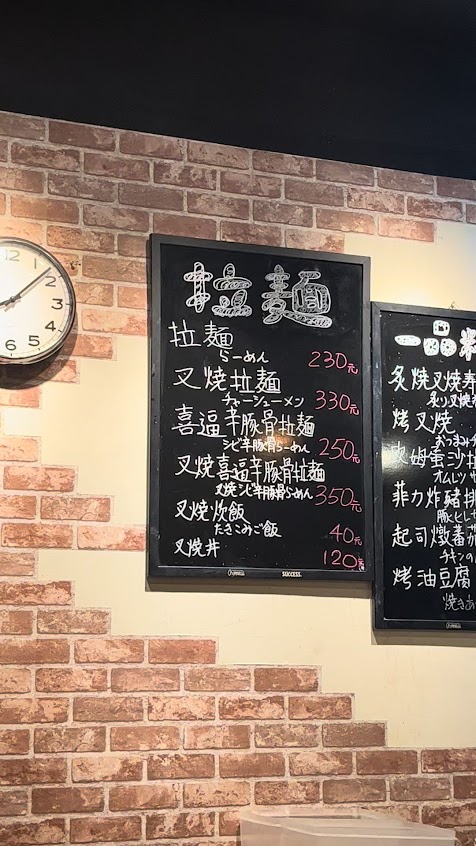 拉麵
拉麵
らーめん 230元
叉燒拉麵
チャーシューメン 330元
喜逼辛豚骨拉麵
シビ辛豚骨らーめん 250元
叉燒喜逼辛豚骨拉麵
叉燒シビ辛豚骨らーめん 350元
叉燒炊飯
たきこみご飯 40元
叉燒丼 120元
SUCCESS
一品
炙燒叉燒壽
炙り叉燒
烤叉燒
おつまみ
歐姆蛋沙拉
オムレツサ
菲力炸豬排
豚ヒレ
起司燉蕃茄
チキンの
烤油豆腐
焼きあ
12
1
2
3
4
5
6